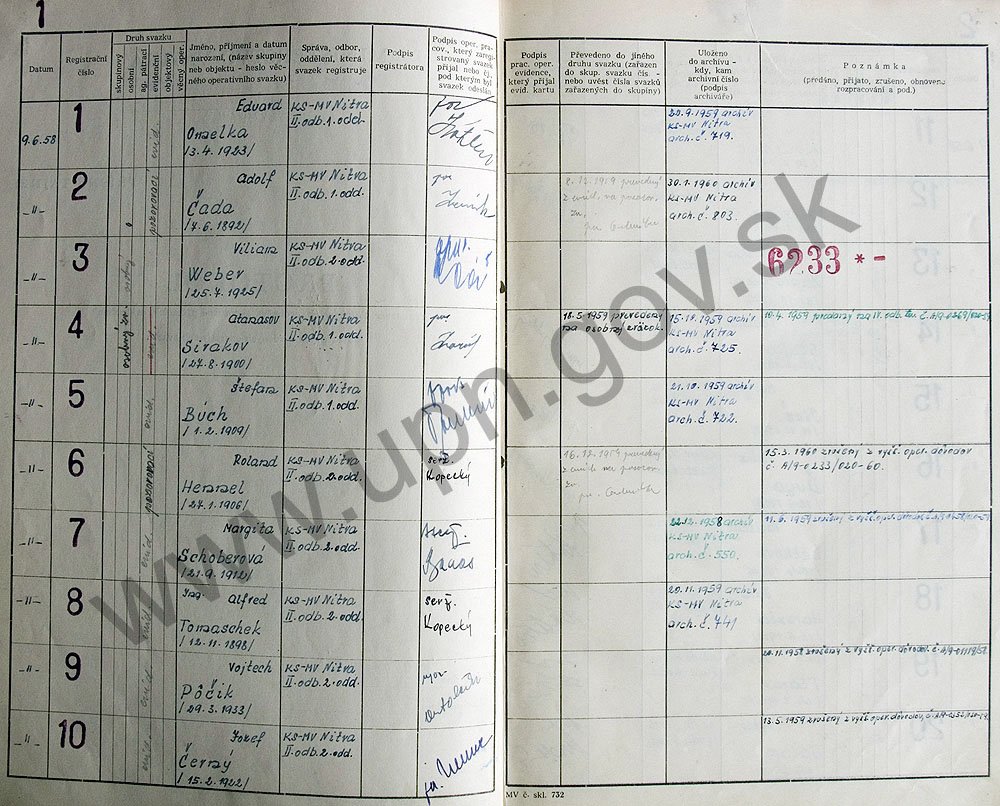 1
Datum
Registrační číslo
Druh svazku
skupinový
osobní
ag. pátrací
evidenční
objektový
věcný oper.
Jméno, příjmení a datum
narození, (název skupiny
neb objektu - heslo věc-
ného operativního svazku)
Správa, odbor,
oddělení, která
svazek registruje
Podpis
registrátora
Podpis oper. pra-
cov., který zareg-
istrovaný svazek
přijal nebo čj.,
pod kterým byl
svazek odeslán
Podpis
prac. oper.
evidence,
který přijal
evid. kartu
Převedeno do jiného
druhu svazku (zařazen
do skup. svazku čís. -
nebo uvést čísla svazků
zařazených do skupiny)
Uloženo
do archivu -
kdy, kam
archivní číslo
(podpis
archiváře)
Poznámka
(předáno, přijato, zrušeno, obnoveno
rozpracování a pod.)
9.6.58
1
evid.
Eduard
Omelka
/3.4.1923/
KS-MV Nitra
II. odb. 1. odd.
20.9.1959 archív
KS-MV Nitra
arch. č. 719.
-"-
2
pozorovací
Adolf
Čada
/7.6.1892/
KS-MV Nitra
II. odb. 1. odd.
30.1.1960 archív
KS-MV Nitra
arch. č. 803.
-"-
3
Viliam
Weber
/25.7.1925/
KS-MV Nitra
II. odb. 2. odd.
6233 * -
-"-
4
evid.
Atanasov
Sirakov
/27.8.1900/
KS-MV Nitra
II. odb. 1. odd.
18.5.1959 prevedený
na osobný zväzok.
KS-MV Nitra
arch. č. 725.
-"-
5
evid.
Štefan
Búch
/1.2.1909/
KS-MV Nitra
II. odb. 1. odd.
21.10.1959 archív
KS-MV Nitra
arch. č. 722.
-"-
6
pozorovací
Roland
Hemmel
/27.1.1906/
KS-MV Nitra
II. odb. 2. odd.
serž.
Kopecký
16.12.1959 prevedený
z evid. na pozorov.
zv.
15.3.1960 zrušený z vyšš. oper. dôvodov
č. A/9-0233/020-60.
-"-
7
evid.
Margita
Schoberová
/21.9.1912/
KS-MV Nitra
II. odb. 2. odd.
22.12.1958 archív
KS-MV Nitra
arch. č. 550.
-"-
8
evid.
Ing. Alfred
Tomaschek
/12.11.1898/
KS-MV Nitra
II. odb. 2. odd.
serž.
Kopecký
20.11.1959 archív
KS-MV Nitra
arch. č. 741
-"-
9
evid.
Vojtech
Pôčik
/29.3.1933/
KS-MV Nitra
II. odb. 2. odd.
-"-
10
evid.
Jozef
Černý
/15.2.1922/
KS-MV Nitra
II. odb. 2. odd.
MV č. skl. 732
www.upn.gov.sk